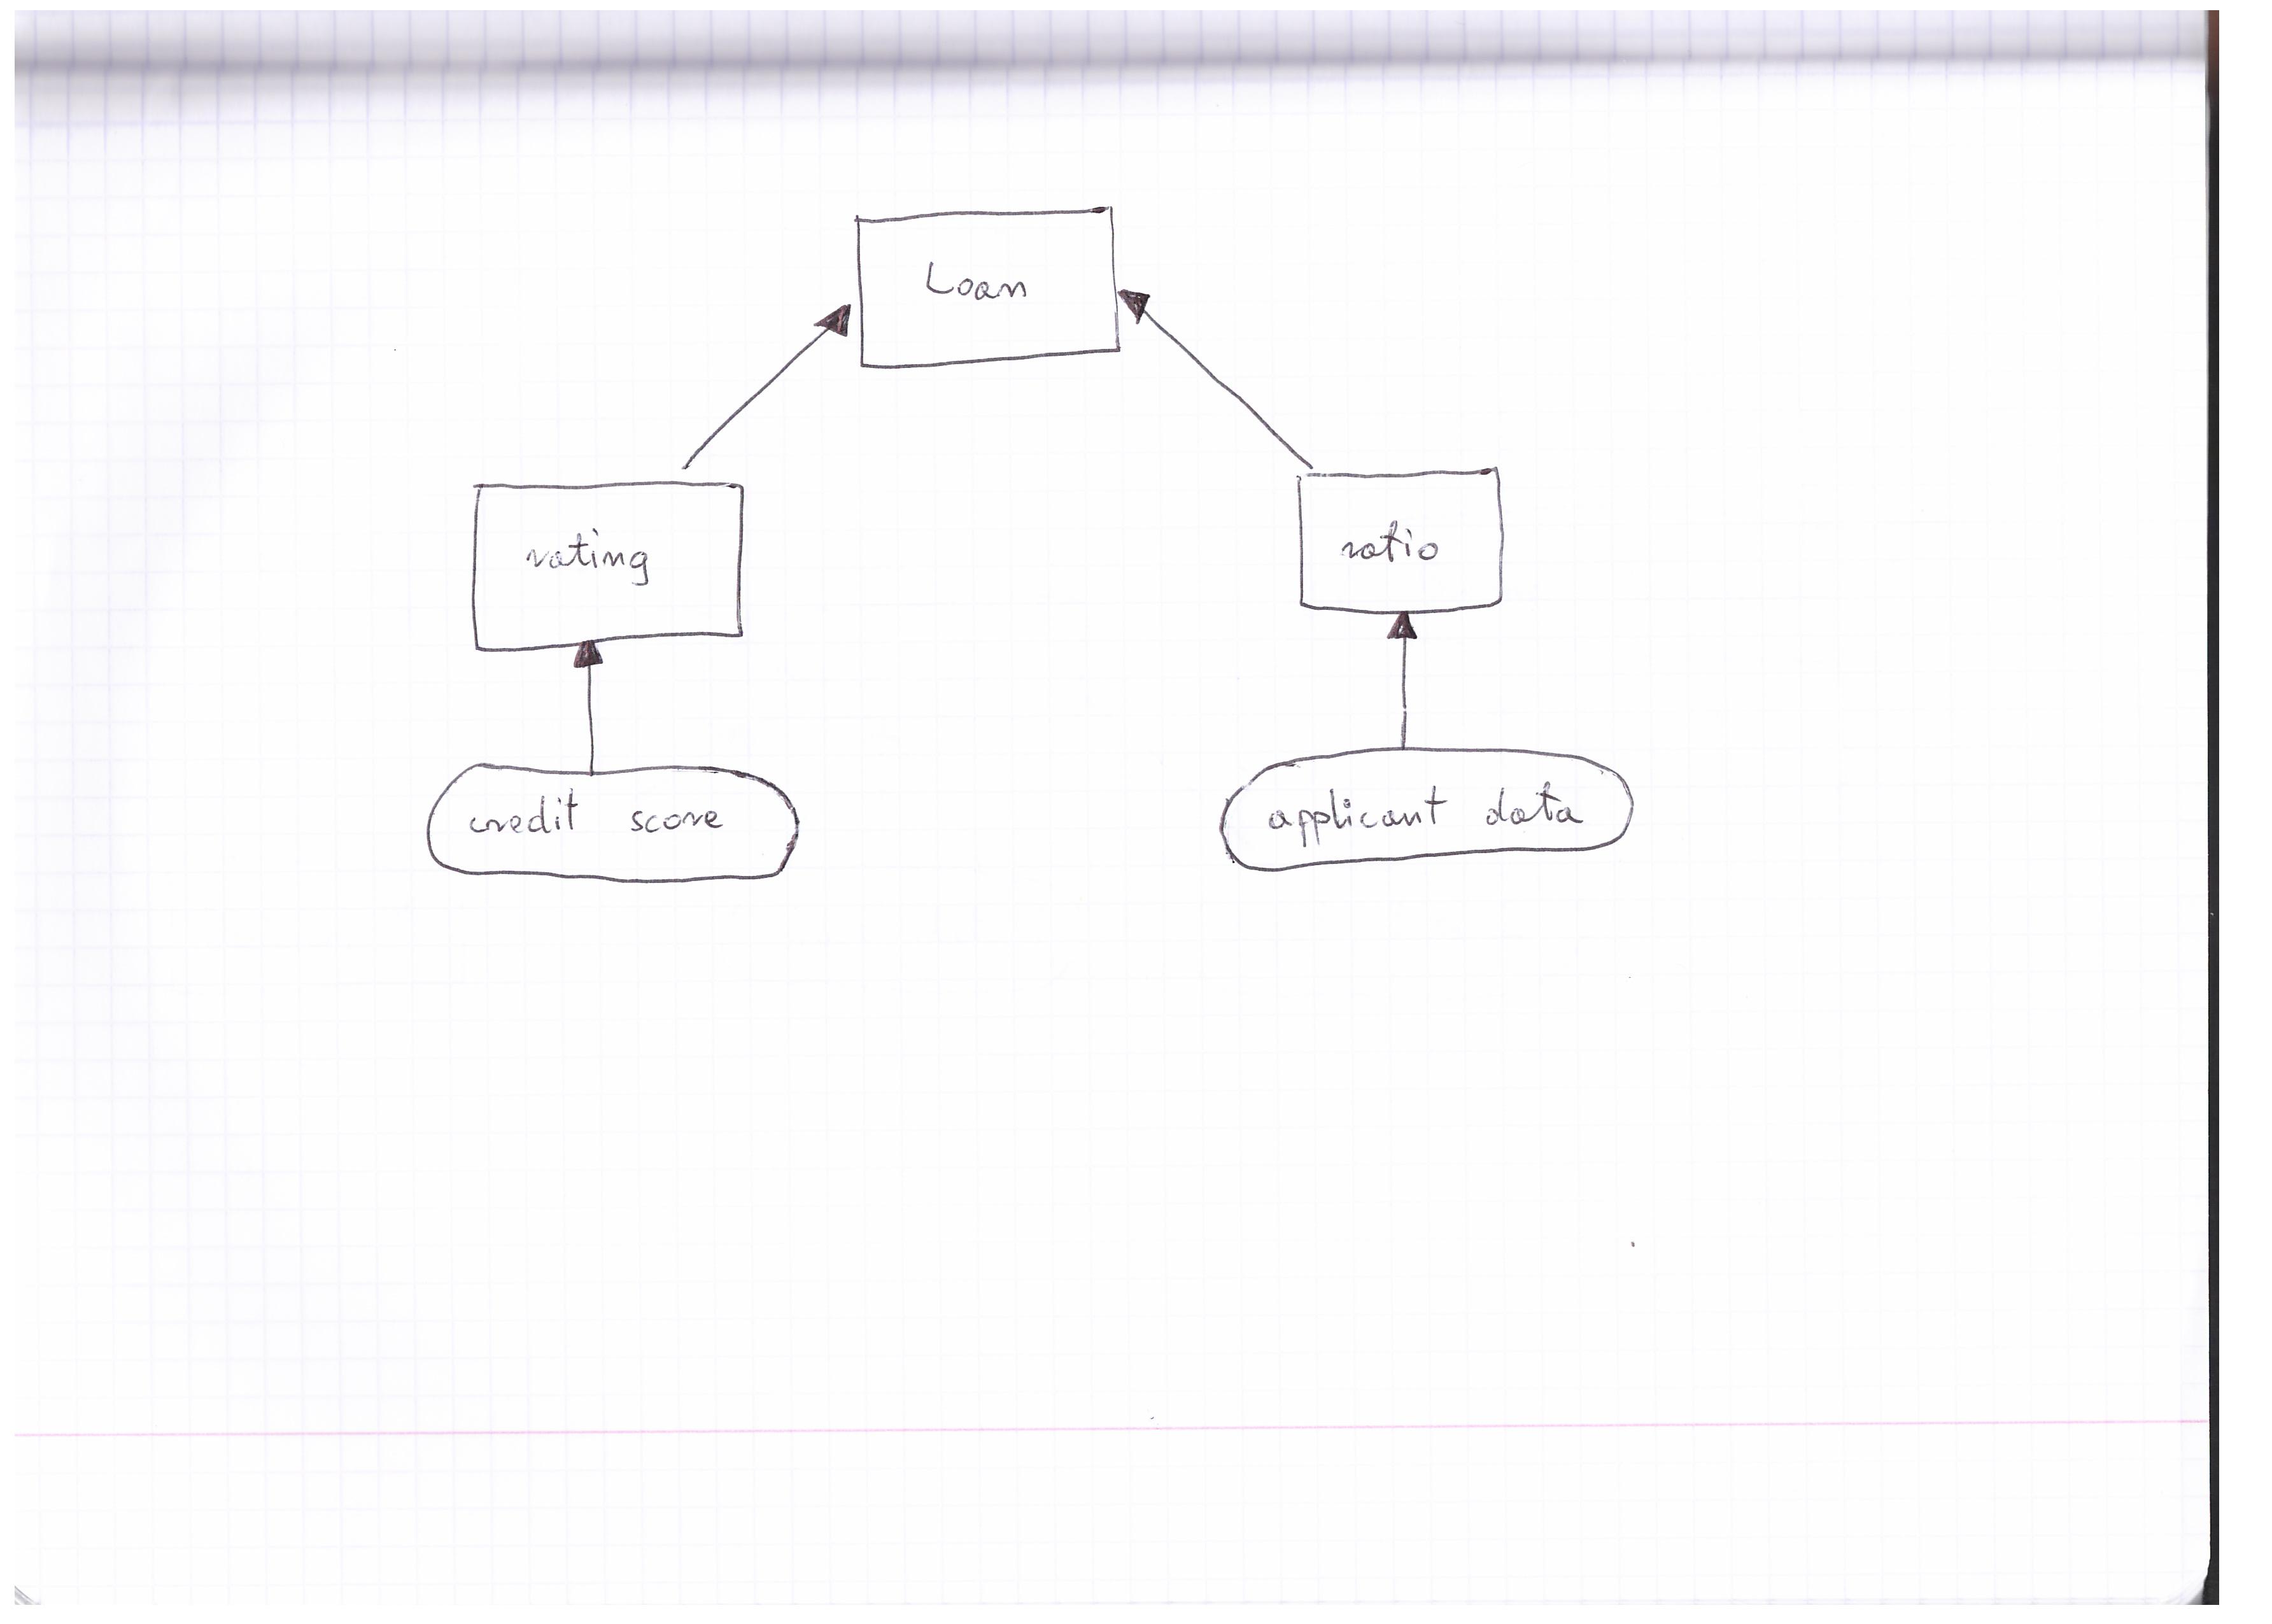 Loan
rating
ratio
credit score
applicant data